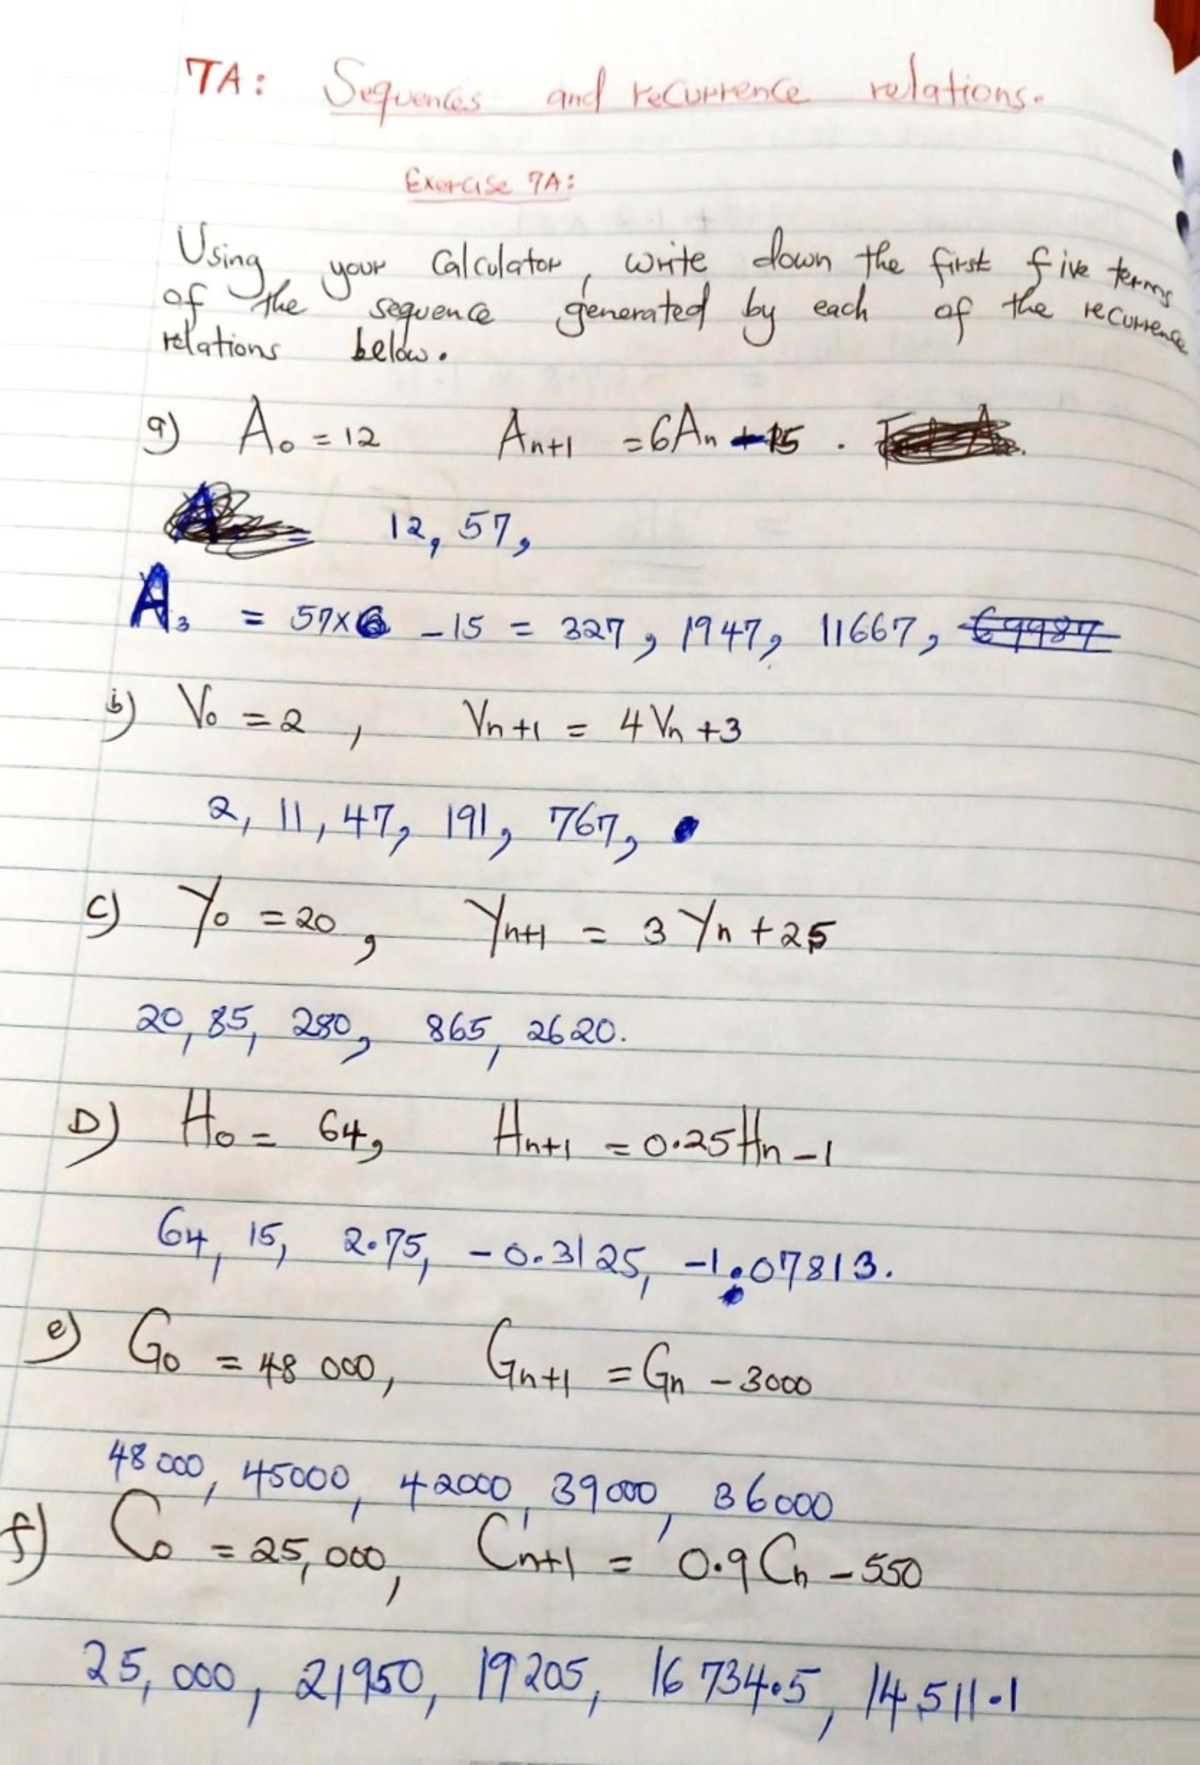 7A: Sequences and recurrence relations.
Exercise 7A:
Using your calculator, write down the first five terms
of the sequence generated by each of the recurrence
relations below.
a) A₀ = 12 Aₙ₊₁ = 6Aₙ - 15 .
12, 57,
A₃ = 57×6 - 15 = 327, 1947, 11667, 69987
b) V₀ = 2, Vₙ₊₁ = 4Vₙ + 3
2, 11, 47, 191, 767,
c) Y₀ = 20, Yₙ₊₁ = 3Yₙ + 25
20, 85, 280, 865, 2620.
D) H₀ = 64, Hₙ₊₁ = 0.25Hₙ - 1
64, 15, 2.75, -0.3125, -1.07813.
e) G₀ = 48 000, Gₙ₊₁ = Gₙ - 3000
48 000, 45000, 42000, 39000, 36000
f) C₀ = 25,000, Cₙ₊₁ = 0.9Cₙ - 550
25,000, 21950, 19205, 16734.5, 14511.1